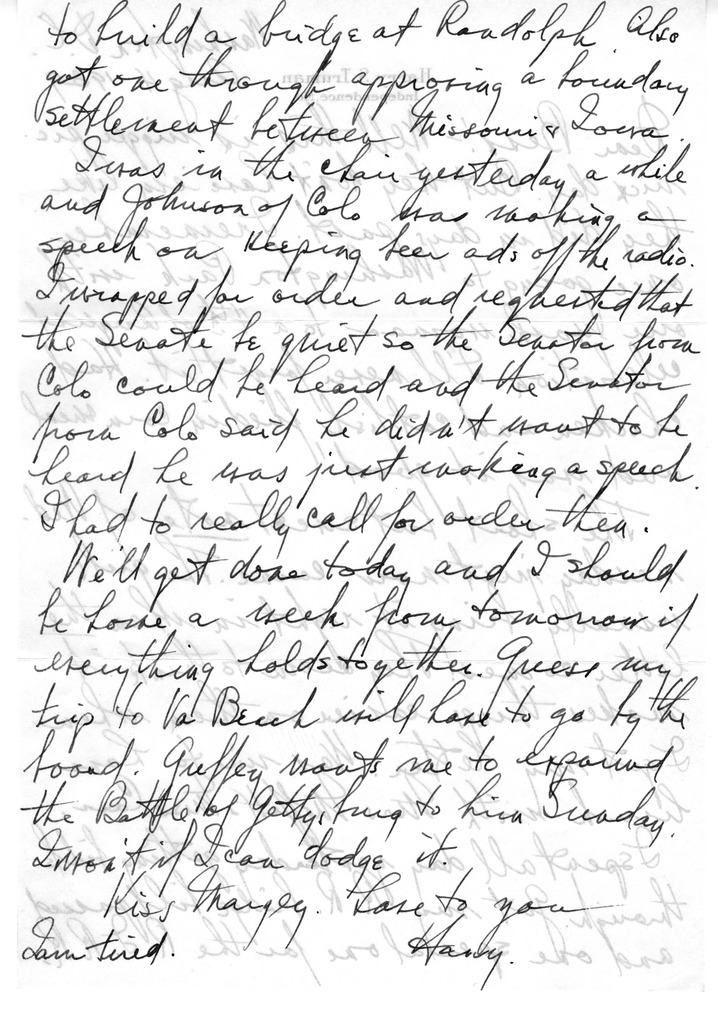 to build a bridge at Randolph. Also
got one through approving a boundary
settlement between Missouri & Iowa.
I was in the chair yesterday a while
and Johnson of Colo was making a
speech on keeping beer ads off the radio.
I wrapped for order and requested that
the Senate be quiet so the Senator from
Colo could be heard and the Senator
from Colo said he didn't want to be
heard he was just making a speech.
I had to really call for order then.
We'll get done today and I should
be home a week from tomorrow if
everything holds together. Guess my
trip to Va Beach will have to go by the
board. Guffey wants me to expound
the Battle of Gettysburg to him Sunday.
I won't if I can dodge it.
Kiss Margey. Love to you
I am tired. Harry.